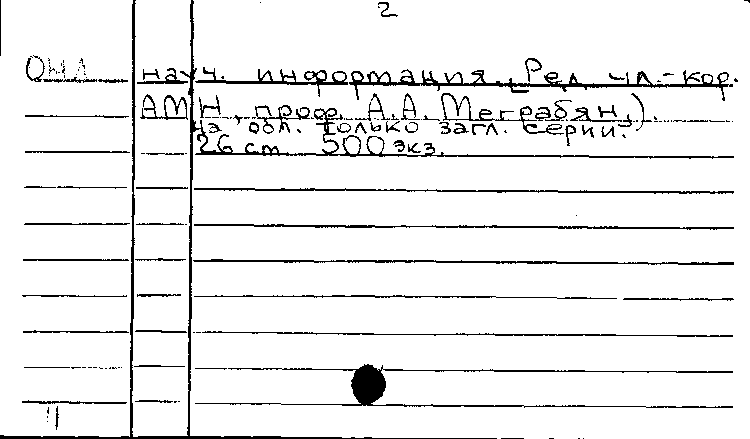 2
науч. информация. Ред. чл.-кор.
АМН, проф. А.А. Меграбян.).
На обл. только загл. серии.
26 см 500 экз.